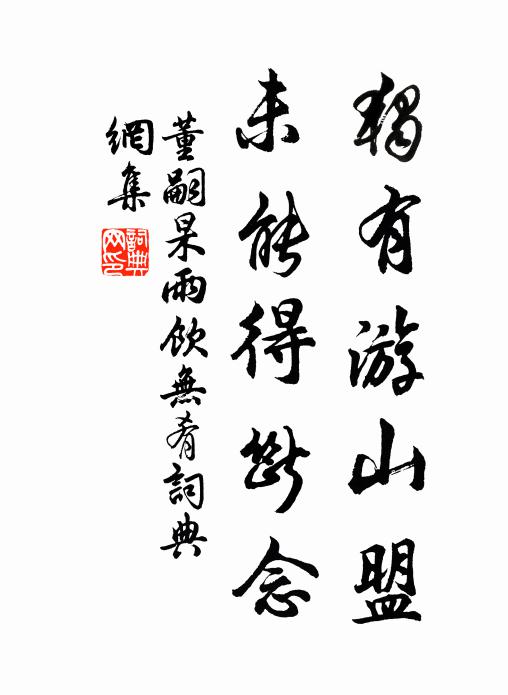 獨有游山盟
未能得斷念
董嗣杲雨飲無肴詞典
網集
詞典
网印